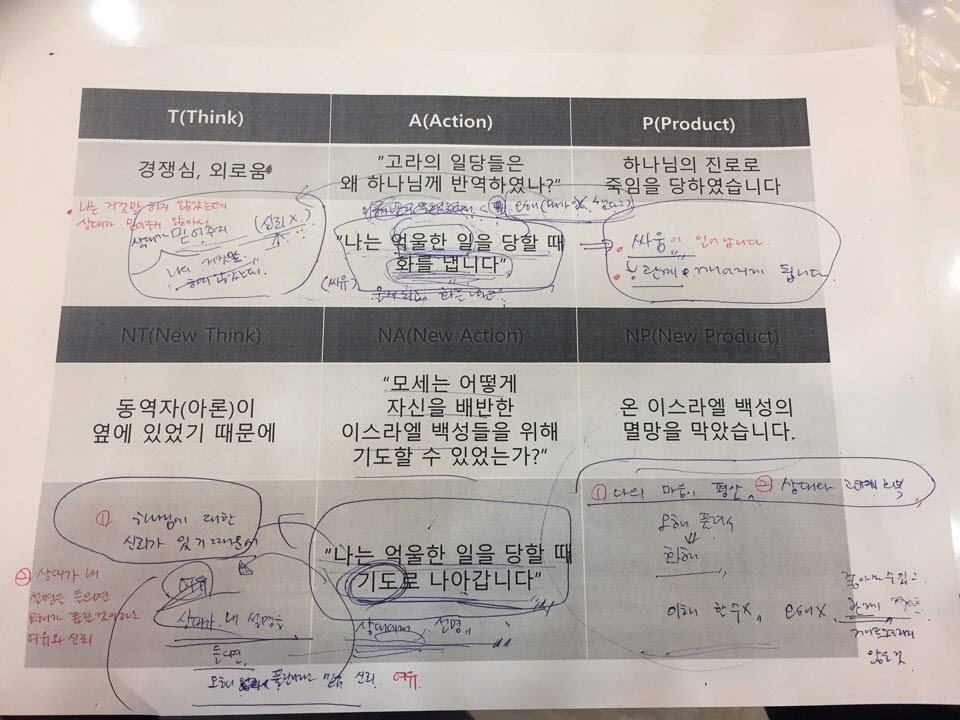 T(Think)
A(Action)
P(Product)
경쟁심, 외로움
"고라의 일당들은
왜 하나님께 반역하였나?"
하나님의 진로로
죽임을 당하였습니다
나는 거짓말 하지 않았는데
상대가 믿어주지 않아서
상대가 믿어주지
(신뢰 X)
나의 거짓말
하지 않았는데
"나는 억울한 일을 당할 때
화를 냅니다"
(싸유)
화를 내고
싸움이 일어납니다.
관계
됩니다
NT(New Think)
NA(New Action)
NP(New Product)
동역자(아론)이
옆에 있었기 때문에
"모세는 어떻게
자신을 배반한
이스라엘 백성들을 위해
기도할 수 있었는가?"
온 이스라엘 백성의
멸망을 막았습니다.
① 하나님에 대한
신뢰가 있기 때문에
② 상대가 내
설명을 들으면
오해가 풀린것이라는
여유와 신뢰
여유
상대가 내 설명을
들으면
오해 풀린다는 믿음 신뢰 여유
"나는 억울한 일을 당할 때
기도로 나아갑니다"
상대에게 설명
① 나의 마음이 평안, ② 상대와 관계회복
오해 풀려서
화해
이해 한수X 오해X
관계
않은것